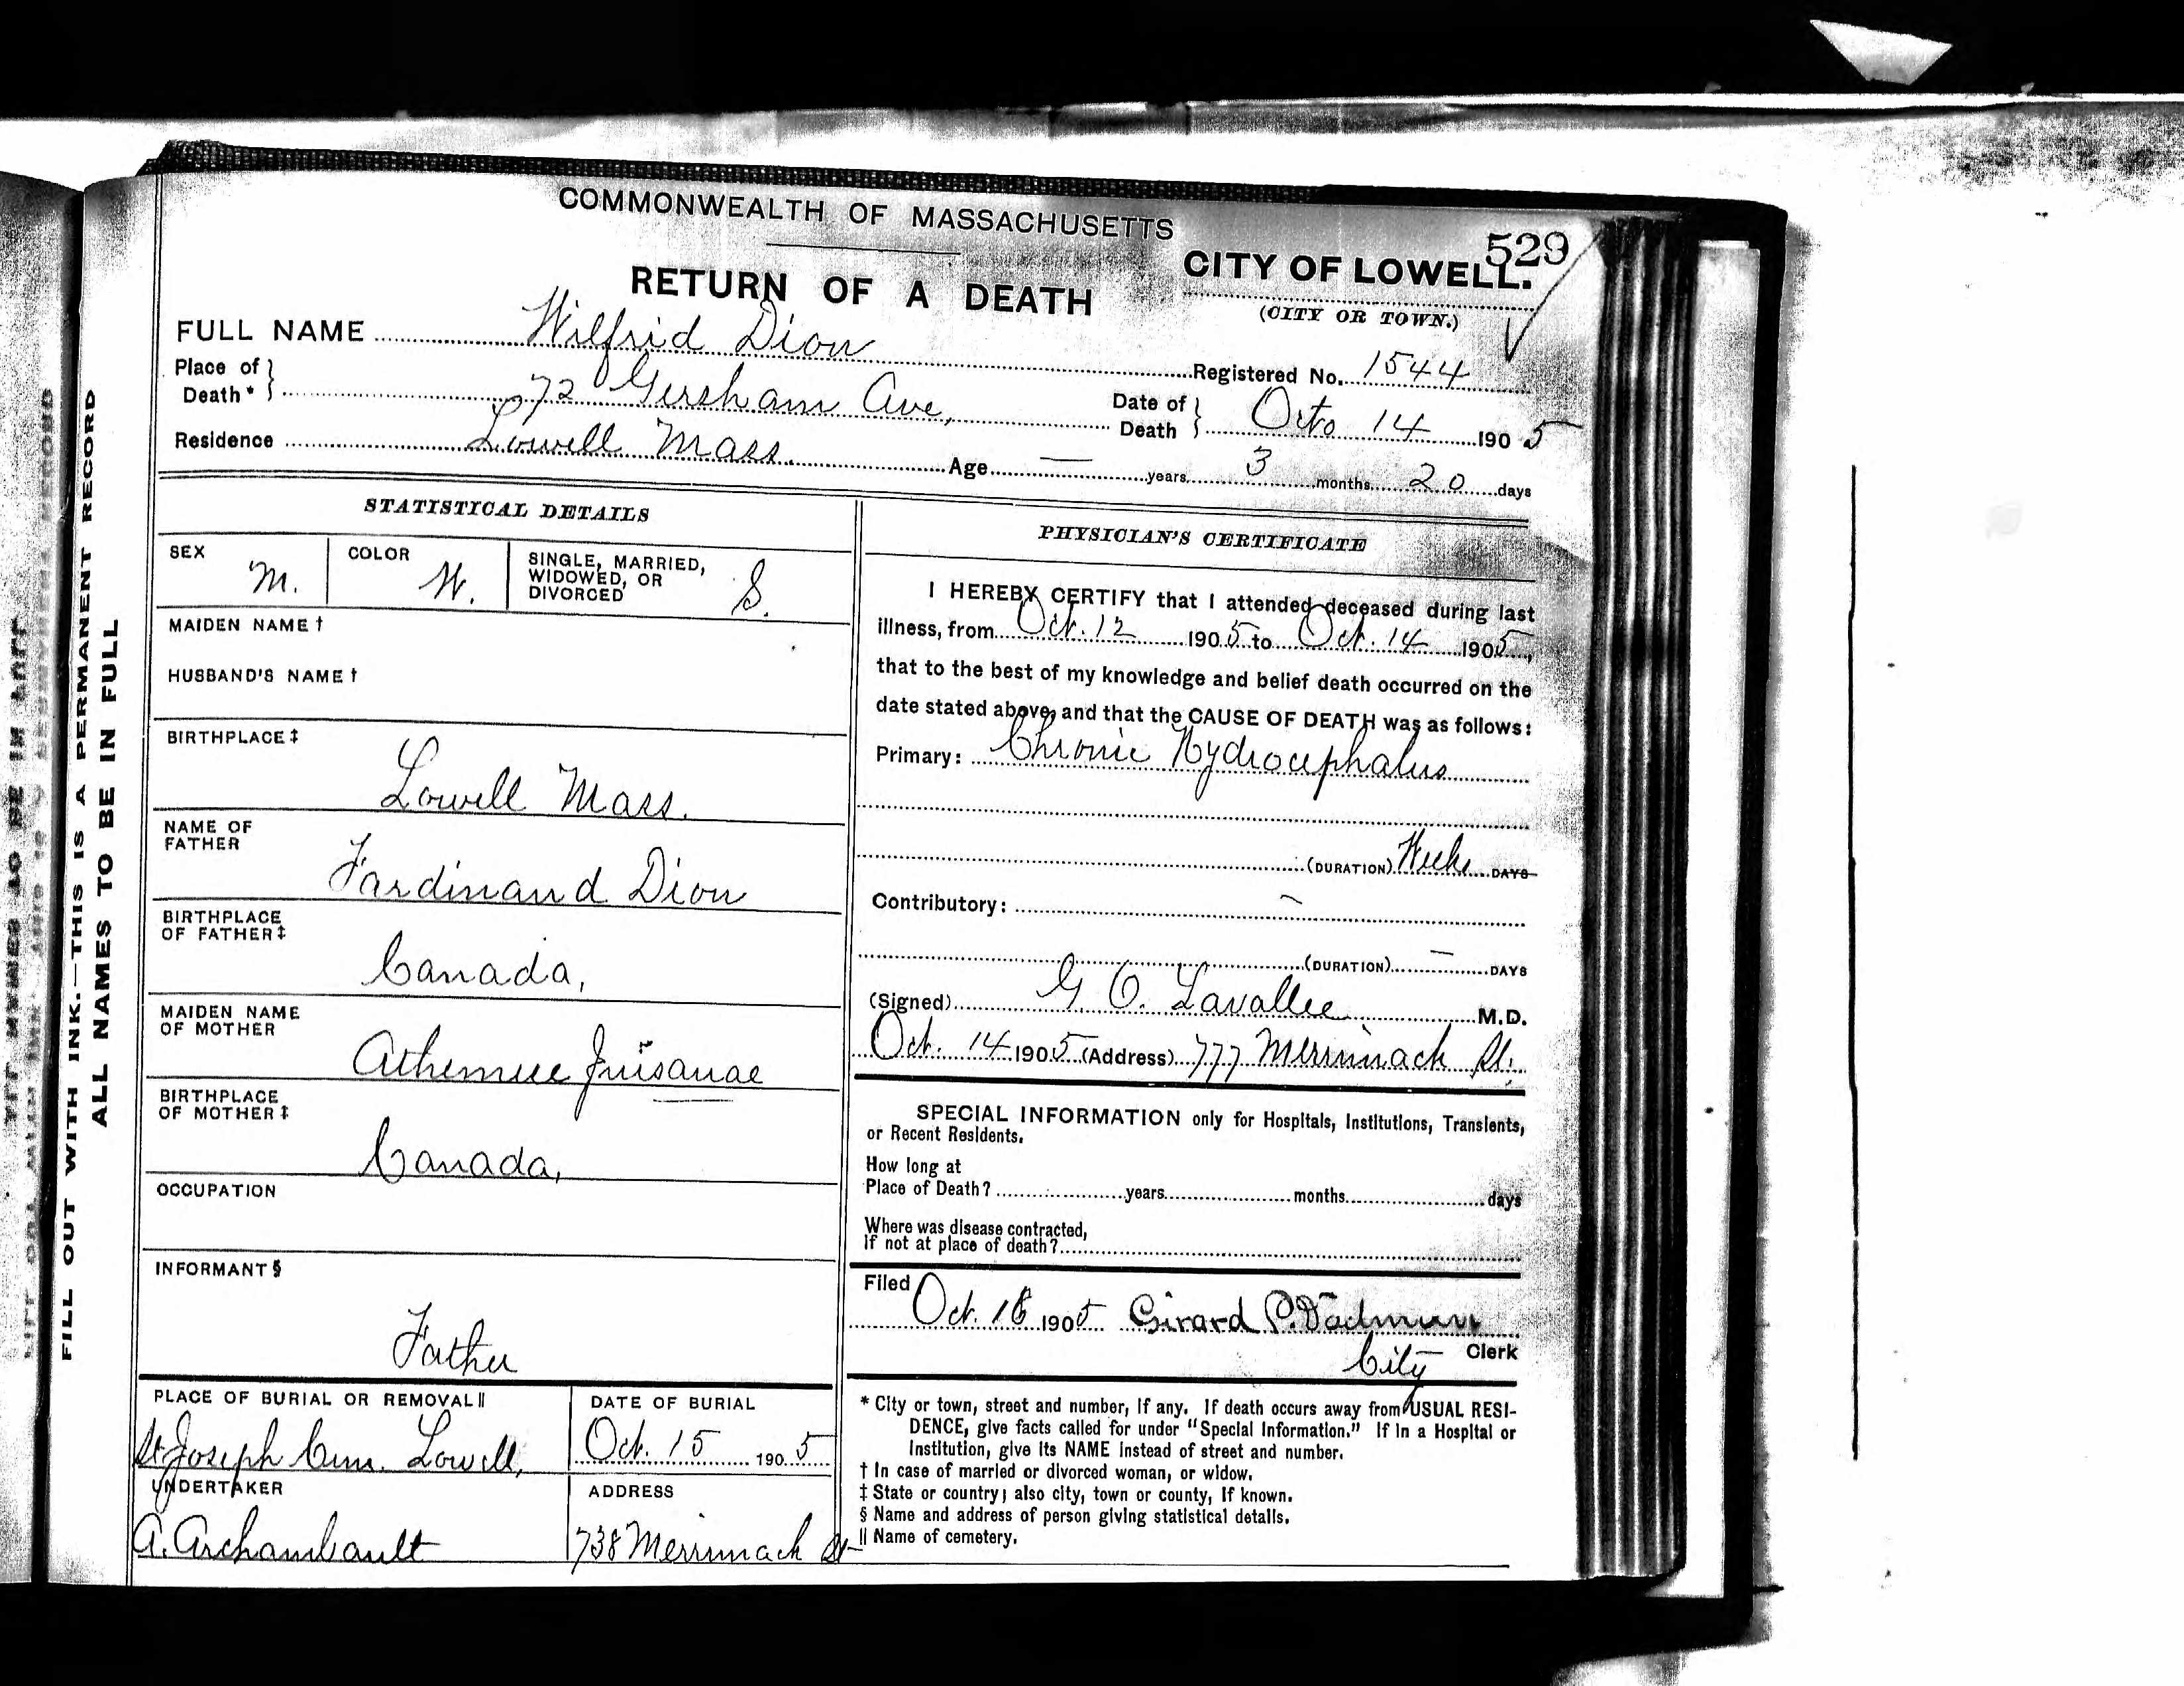 COMMONWEALTH OF MASSACHUSETTS
529
CITY OF LOWELL.
RETURN OF A DEATH
(CITY OR TOWN.)
FULL NAME Wilfrid Dion
Registered No. 1544
Place of Death* 72 Gersham Ave,
Date of Death Octo 14 1905
Residence Lowell Mass.
Age — years 3 months 20 days
FILL OUT WITH INK.—THIS IS A PERMANENT RECORD
ALL NAMES TO BE IN FULL
STATISTICAL DETAILS
SEX M.
COLOR W.
SINGLE, MARRIED, WIDOWED, OR DIVORCED S.
MAIDEN NAME †
HUSBAND'S NAME †
BIRTHPLACE ‡
Lowell Mass.
NAME OF FATHER
Fardinand Dion
BIRTHPLACE OF FATHER ‡
Canada,
MAIDEN NAME OF MOTHER
BIRTHPLACE OF MOTHER ‡
Canada,
OCCUPATION
INFORMANT §
Father
PLACE OF BURIAL OR REMOVAL ||
St Joseph Cem. Lowell,
DATE OF BURIAL
Oct. 15 1905
UNDERTAKER
A. Archambault
ADDRESS
738 Merrimack St
PHYSICIAN'S CERTIFICATE
I HEREBY CERTIFY that I attended deceased during last
illness, from Oct. 12 1905 to Oct. 14 1905,
that to the best of my knowledge and belief death occurred on the
date stated above, and that the CAUSE OF DEATH was as follows:
Primary: Chronic Hydrocephalus
(DURATION) Weeks DAYS
Contributory: —
(DURATION) — DAYS
(Signed) G. O. Lavallee M.D.
Oct. 14 1905 (Address) 777 Merrimack St.
SPECIAL INFORMATION only for Hospitals, Institutions, Transients,
or Recent Residents.
How long at
Place of Death? years months days
Where was disease contracted,
If not at place of death?
Filed
Oct. 16 1905 Girard P. Dadmun
City Clerk
* City or town, street and number, if any. If death occurs away from USUAL RESI-
DENCE, give facts called for under "Special Information." If in a Hospital or
Institution, give its NAME instead of street and number.
† In case of married or divorced woman, or widow.
‡ State or country; also city, town or county, if known.
§ Name and address of person giving statistical details.
|| Name of cemetery.